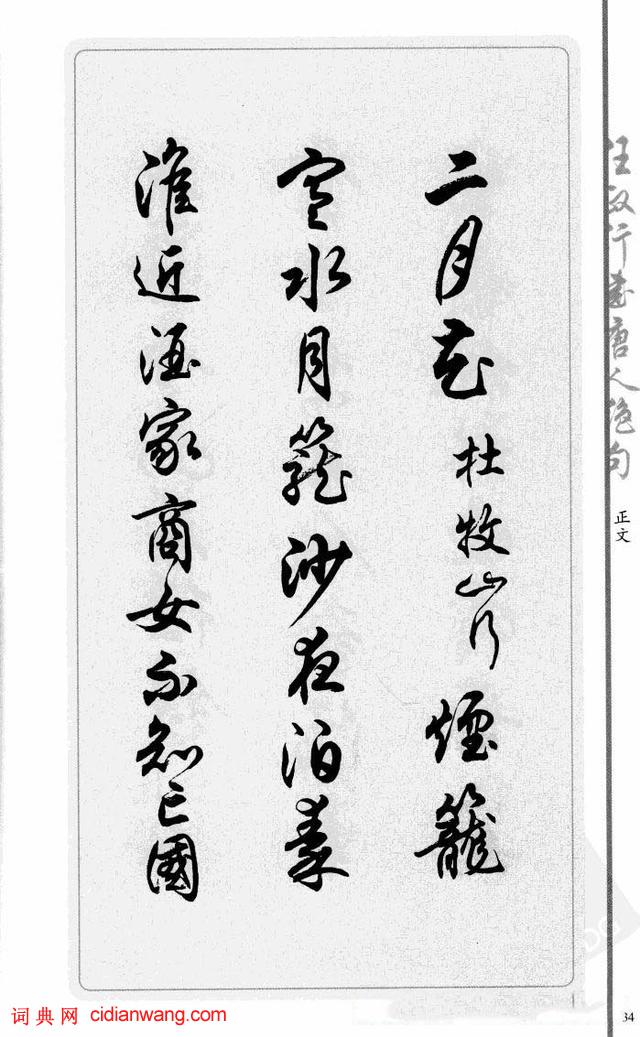 二月花 杜牧山行 煙籠
寒水月籠沙夜泊秦
淮近酒家商女不知亡國
任政行書唐人絶句
正文
34
词典网 cidianwang.com